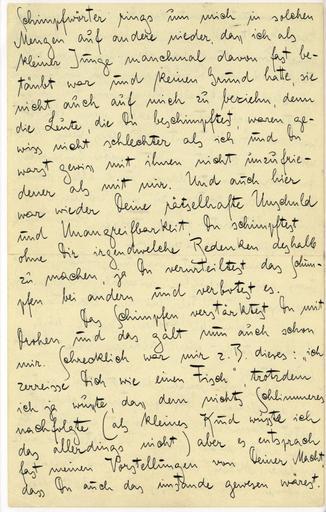 Schimpfwörter rings um mich in solchen
Mengen auf andere nieder, dass ich als
kleiner Junge manchmal davon fast be-
täubt war und keinen Grund hatte sie
nicht auch auf mich zu beziehn, denn
die Leute, die Du beschimpftest, waren ge-
wiss nicht schlechter als ich und Du
warst gewiss mit ihnen nicht unzufrie-
dener als mit mir. Und auch hier
war wieder Deine rätselhafte Unschuld
und Unangreifbarkeit, Du schimpftest
ohne Dir irgendwelche Bedenken deshalb
zu machen, ja Du verurteiltest das Schim-
pfen bei andern und verbotest es.
Das Schimpfen verstärktest Du mit
Drohen und das galt nun auch schon
mir. Schrecklich war mir z. B. dieses: "ich
zerreisse Dich wie einen Fisch" trotzdem
ich ja wusste, dass dem nichts Schlimmeres
nachfolgte (als kleines Kind wusste ich
das allerdings nicht) aber es entsprach
fast meinen Vorstellungen von Deiner Macht
dass Du auch das imstande gewesen wärest.